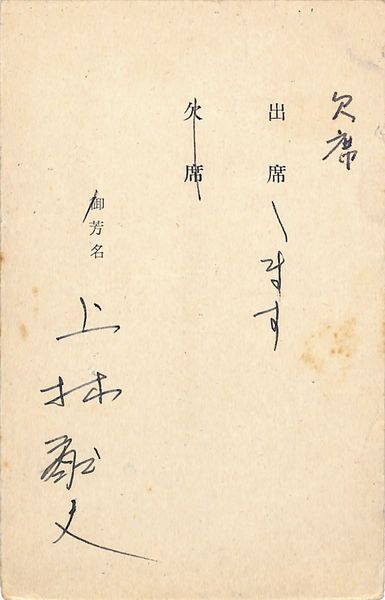 欠席
出席します
欠席
御芳名
上林猷夫